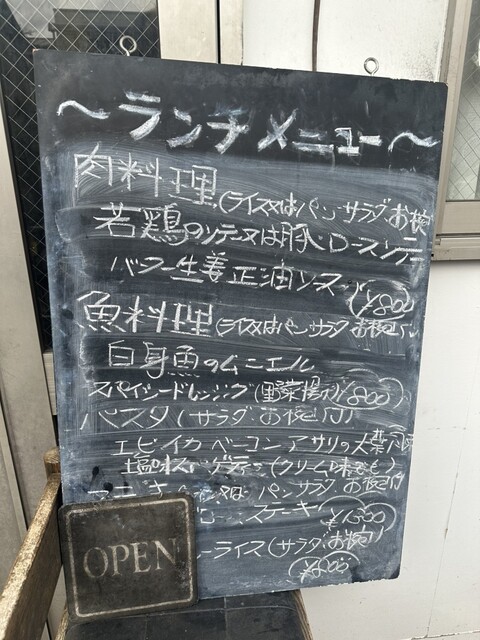 ～ランチメニュー～
肉料理(ライス又はパン サラダ お椀
若鶏のソテー又は豚ロースソテー
バター生姜正油ソース ¥800
魚料理(ライス又はパン サラダ お椀付
白身魚のムニエル
スパイシードレッシング(野菜 ¥800
パスタ(サラダ お椀付)
エビ イカ ベーコン アサリの大葉
塩味スパゲティー(クリーム味でも)
又は パン サラダ お椀付
ステーキ ¥1300
ライス(サラダ お椀
¥600
OPEN